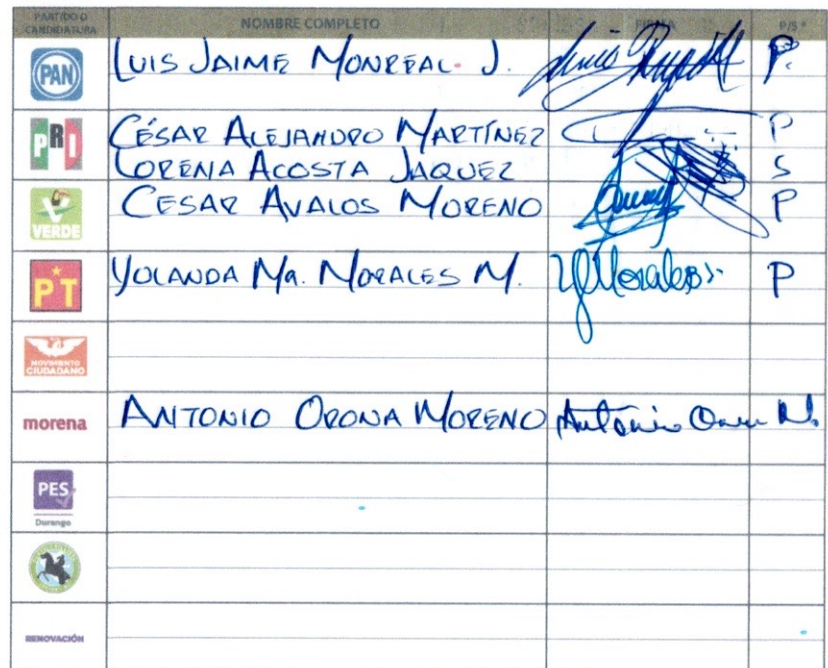 PARTIDO O CANDIDATURA NOMBRE COMPLETO FIRMA P/S*
PAN LUIS JAIME MONREAL J. P.
PRI CÉSAR ALEJANDRO MARTÍNEZ P
LORENA ACOSTA JAQUEZ S
VERDE CESAR AVALOS MORENO P
PT YOLANDA Ma. MORALES M. YMorales P
MOVIMIENTO CIUDADANO
morena ANTONIO ORONA MORENO Antonio Orona M.
PES
Durango
RENOVACIÓN